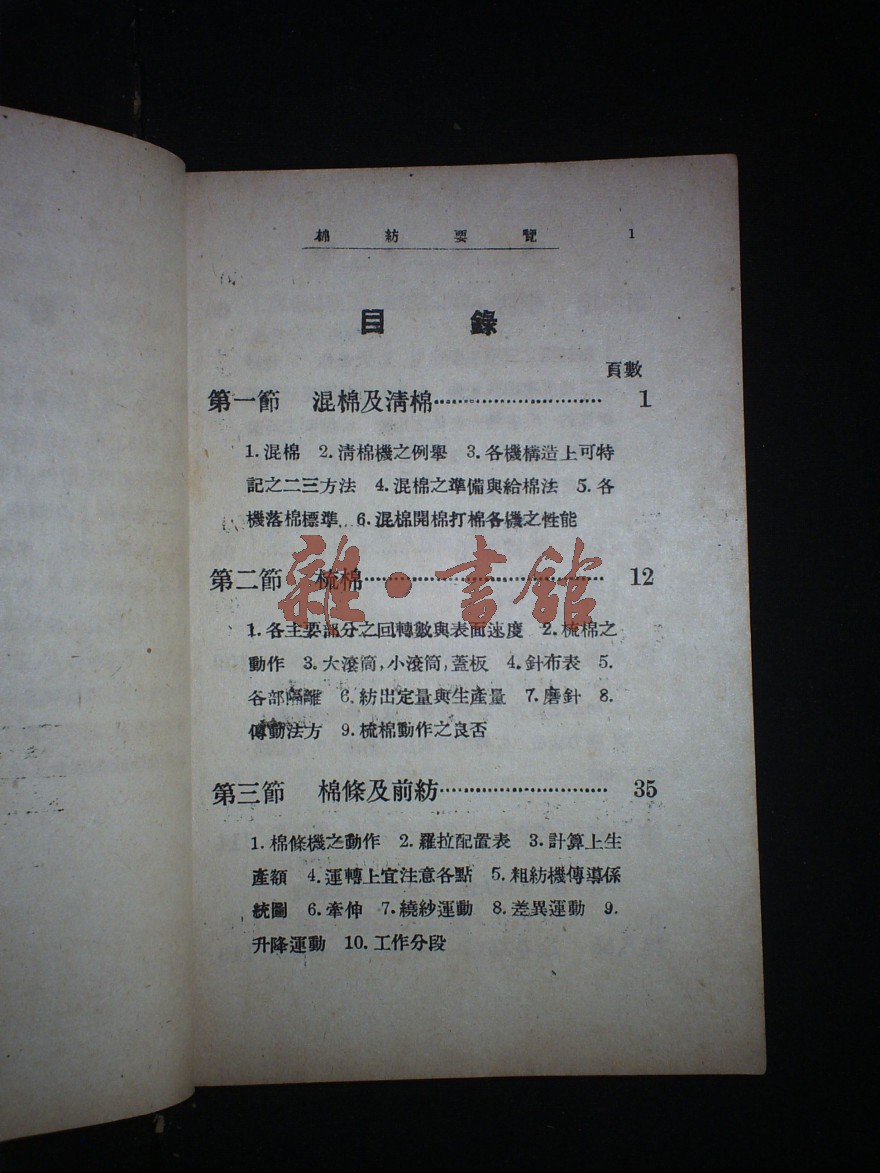 棉紡要覽 1
目錄
頁數
第一節 混棉及清棉 1
1.混棉 2.清棉機之例舉 3.各機構造上可特
記之二三方法 4.混棉之準備與給棉法 5.各
機落棉標準 6.混棉開棉打棉各機之性能
第二節 梳棉 12
1.各主要部分之回轉數與表面速度 2.梳棉之
動作 3.大滾筒,小滾筒,蓋板 4.針布表 5.
各部隔離 6.紡出定量與生產量 7.磨針 8.
傳動法方 9.梳棉動作之良否
第三節 棉條及前紡 35
1.棉條機之動作 2.羅拉配置表 3.計算上生
產額 4.運轉上宜注意各點 5.粗紡機傳導係
統圖 6.牽伸 7.繞紗運動 8.差異運動 9.
升降運動 10.工作分段
雜·書館